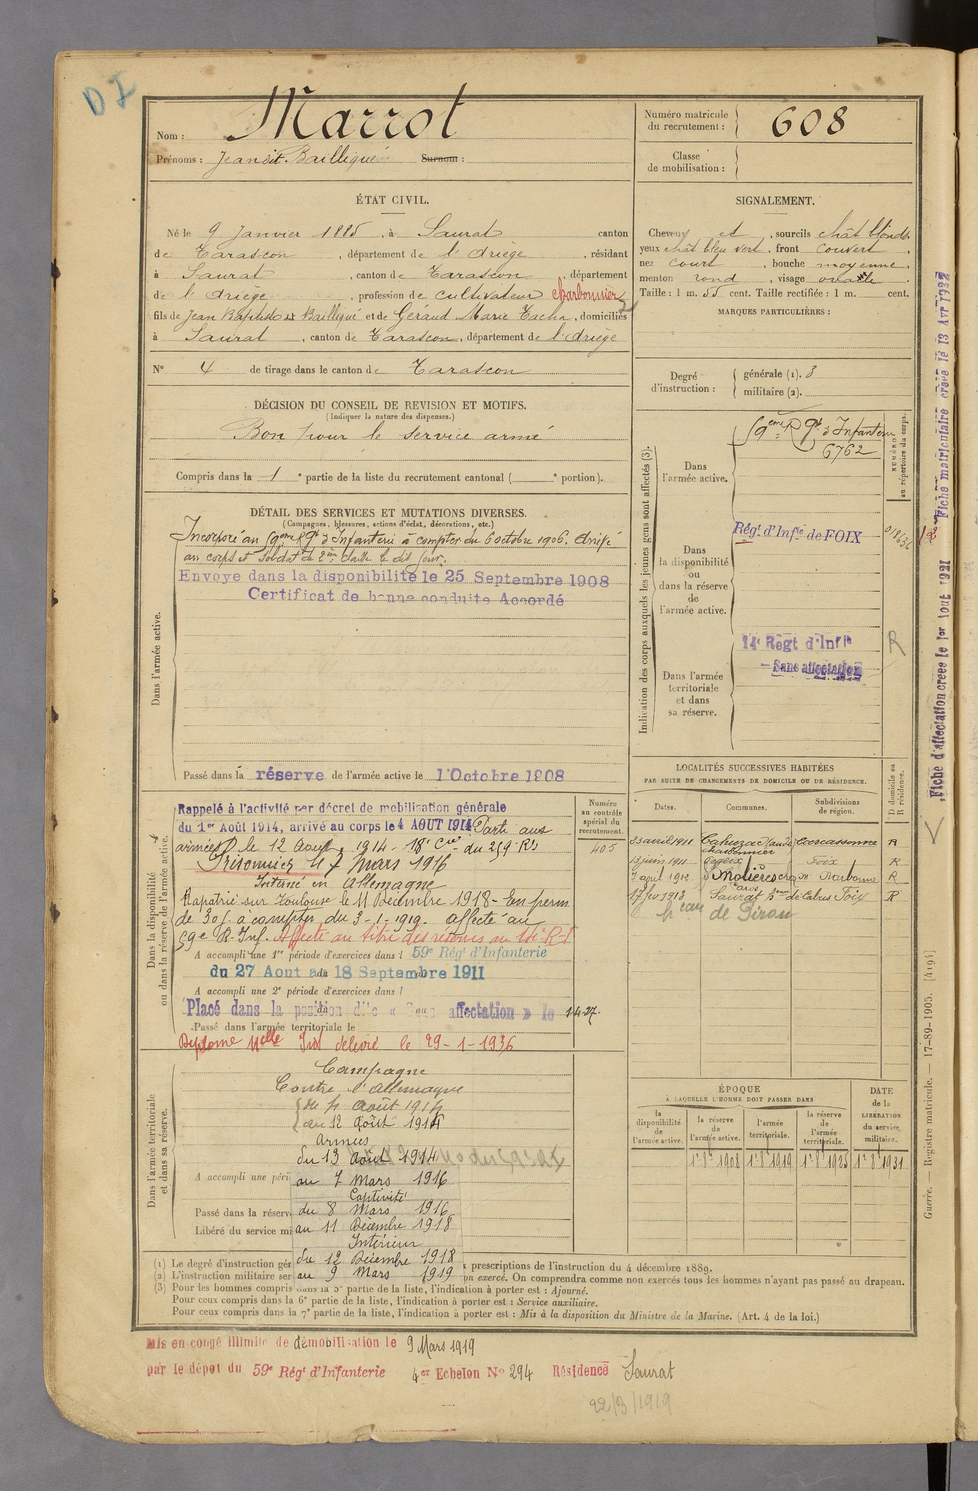 DI
Nom : Marrot
Prénoms : Jean dit Baillique Surnom :
Numéro matricule
du recrutement : 608
Classe
de mobilisation :
ÉTAT CIVIL.
Né le 9 Janvier 1885, à Saurat canton
de Tarascon, département de l'Ariège, résidant
à Saurat, canton de Tarascon, département
de l'Ariège, profession de cultivateur charbonnier
fils de Jean Baptiste dit Baillique et de Géraud Marie, domiciliés
à Saurat, canton de Tarascon, département de l'Ariège
N° 4 de tirage dans le canton de Tarascon
SIGNALEMENT.
Cheveux et, sourcils chât blonds
yeux chât bleu vert, front couvert
nez court, bouche moyenne
menton rond, visage ovale
Taille : 1 m. 55 cent. Taille rectifiée : 1 m. cent.
MARQUES PARTICULIÈRES :
Degré
d'instruction :
générale (1). 3
militaire (2).
DÉCISION DU CONSEIL DE REVISION ET MOTIFS.
(Indiquer la nature des dispenses.)
Bon pour le service armé
Compris dans la 1e partie de la liste du recrutement cantonal ( e portion).
DÉTAIL DES SERVICES ET MUTATIONS DIVERSES.
(Campagnes, blessures, actions d'éclat, décorations, etc.)
Dans l'armée active.
Incorporé au 59ème Rgt d'Infanterie à compter du 6 octobre 1906. Arrivé
au corps et soldat de 2ème classe le dit jour.
Envoyé dans la disponibilité le 25 Septembre 1908
Certificat de bonne conduite Accordé
Passé dans la réserve de l'armée active le 1 Octobre 1908
Indication des corps auxquels les jeunes gens sont affectés (3).
Dans
l'armée active.
59ème Rgt d'Infanterie
6762
NUMÉRO
au répertoire du corps.
Dans
la disponibilité
ou
dans la réserve
de
l'armée active.
Régt d'Infie de FOIX
Dans l'armée
territoriale
et dans
sa réserve.
14e Régt d'Infie
Sans affectation
R
Dans la disponibilité
ou dans la réserve de l'armée active.
Rappelé à l'activité par décret de mobilisation générale
du 1er Août 1914, arrivé au corps le 4 AOUT 1914. Parti aux
armées le 12 Août 1914. 18e Cie du 259e RI
Prisonnier le 7 mars 1916
Interné en Allemagne
Rapatrié sur Toulouse le 11 Décembre 1918 - En perm
de 30 j. à compter du 3-1-1919. affecté au
59e R. Inf. Affecté au titre des réserves au
A accompli une 1re période d'exercices dans l 59e Régt d'Infanterie
du 27 Aout au 18 Septembre 1911
A accompli une 2e période d'exercices dans l
Placé dans la position dite « Sans affectation » le 1-4-27.
Passé dans l'armée territoriale le
Diplome délivré le 29-1-1936
Numéro
au contrôle
spécial du
recrutement.
405
LOCALITÉS SUCCESSIVES HABITÉES
PAR SUITE DE CHANGEMENTS DE DOMICILE OU DE RÉSIDENCE.
Dates. Communes. Subdivisions
de région.
D domicile ou
R résidence.
23 avril 1911 Cahuzac Carcassonne R
charbonnier
13 juin 1911 Foix R
7 avril 1912 Molières Narbonne R
17 fev 1913 Saurat Foix R
Dans l'armée territoriale
et dans sa réserve.
Campagne
Contre l'Allemagne
du 4 Août 1914
au 12 Août 1914
Armées
du 13 Août 1914
au 7 Mars 1916
Captivité
du 8 Mars 1916
au 11 Décembre 1918
Intérieur
du 12 Décembre 1918
au 9 Mars 1919
A accompli une péri
Passé dans la réserv
Libéré du service mi
ÉPOQUE
À LAQUELLE L'HOMME DOIT PASSER DANS
la
disponibilité
de
l'armée active.
la réserve
de
l'armée active.
l'armée
territoriale.
la réserve
de
l'armée
territoriale.
DATE
de la
LIBÉRATION
du service
militaire.
1r 8e 1908 1r 8e 1919 1r 8e 1925 1r 8e 1931
(1) Le degré d'instruction gén x prescriptions de l'instruction du 4 décembre 1889.
(2) L'instruction militaire ser on exercé. On comprendra comme non exercés tous les hommes n'ayant pas passé au drapeau.
(3) Pour les hommes compris dans la 5e partie de la liste, l'indication à porter est : Ajourné.
Pour ceux compris dans la 6e partie de la liste, l'indication à porter est : Service auxiliaire.
Pour ceux compris dans la 7e partie de la liste, l'indication à porter est : Mis à la disposition du Ministre de la Marine. (Art. 4 de la loi.)
Mis en congé illimité de démobilisation le 9 Mars 1919
par le dépot du 59e Régt d'Infanterie 4er Echelon N° 294 Résidence Saurat
22/3/1919
Fiche d'affectation créée le 1er Aout 1921
Fiche matriculaire créée le 13 Avr 1932
Guerre. — Registre matricule. — 17-89-1905. [4194]